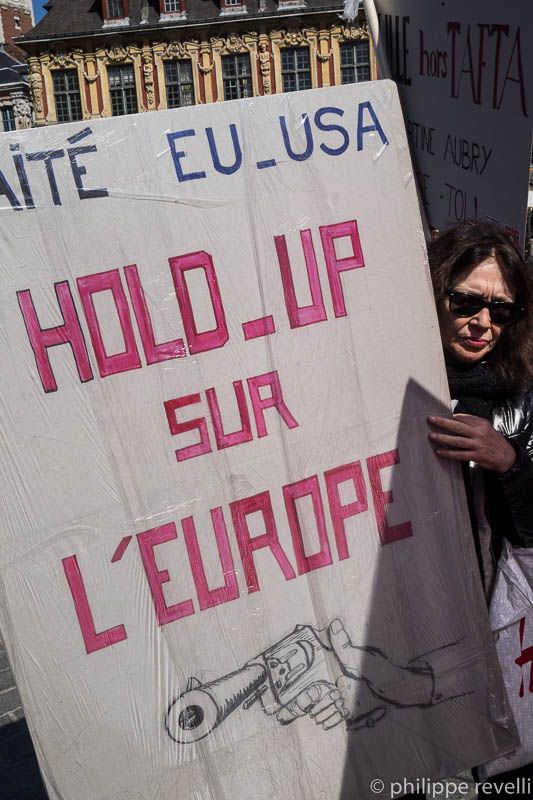 AITÉ EU_USA
HOLD_UP
SUR
L'EUROPE
hors TAFTA
AUBRY
© philippe revelli